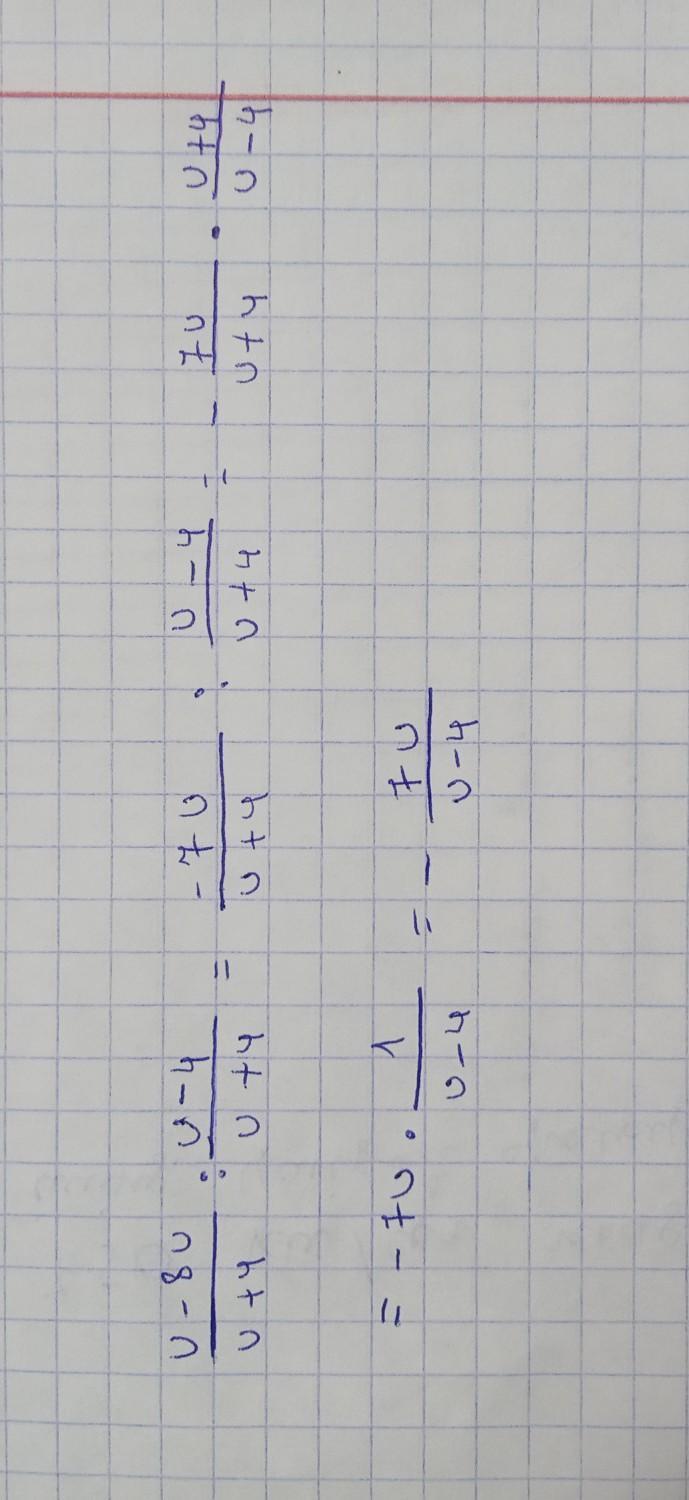 $\frac{v-8v}{v+4} : \frac{v-4}{v+4} = \frac{-7v}{v+4} : \frac{v-4}{v+4} = -\frac{7v}{v+4} \cdot \frac{v+4}{v-4}$
$= -7v \cdot \frac{1}{v-4} = -\frac{7v}{v-4}$